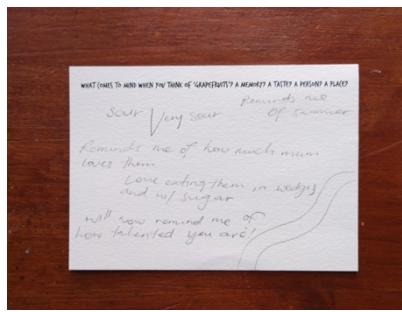 WHAT COMES TO MIND WHEN YOU THINK OF 'GRAPEFRUITS'? A MEMORY? A TASTE? A PERSON? A PLACE?
Sour Very sour
Reminds me
of summer
Reminds me of how much mum
loves them
Love eating them in wedges
and w/ sugar
will now remind me of
how talented you are!